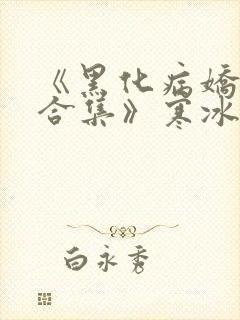 《黑化病娇
合集》寒冰
白永秀